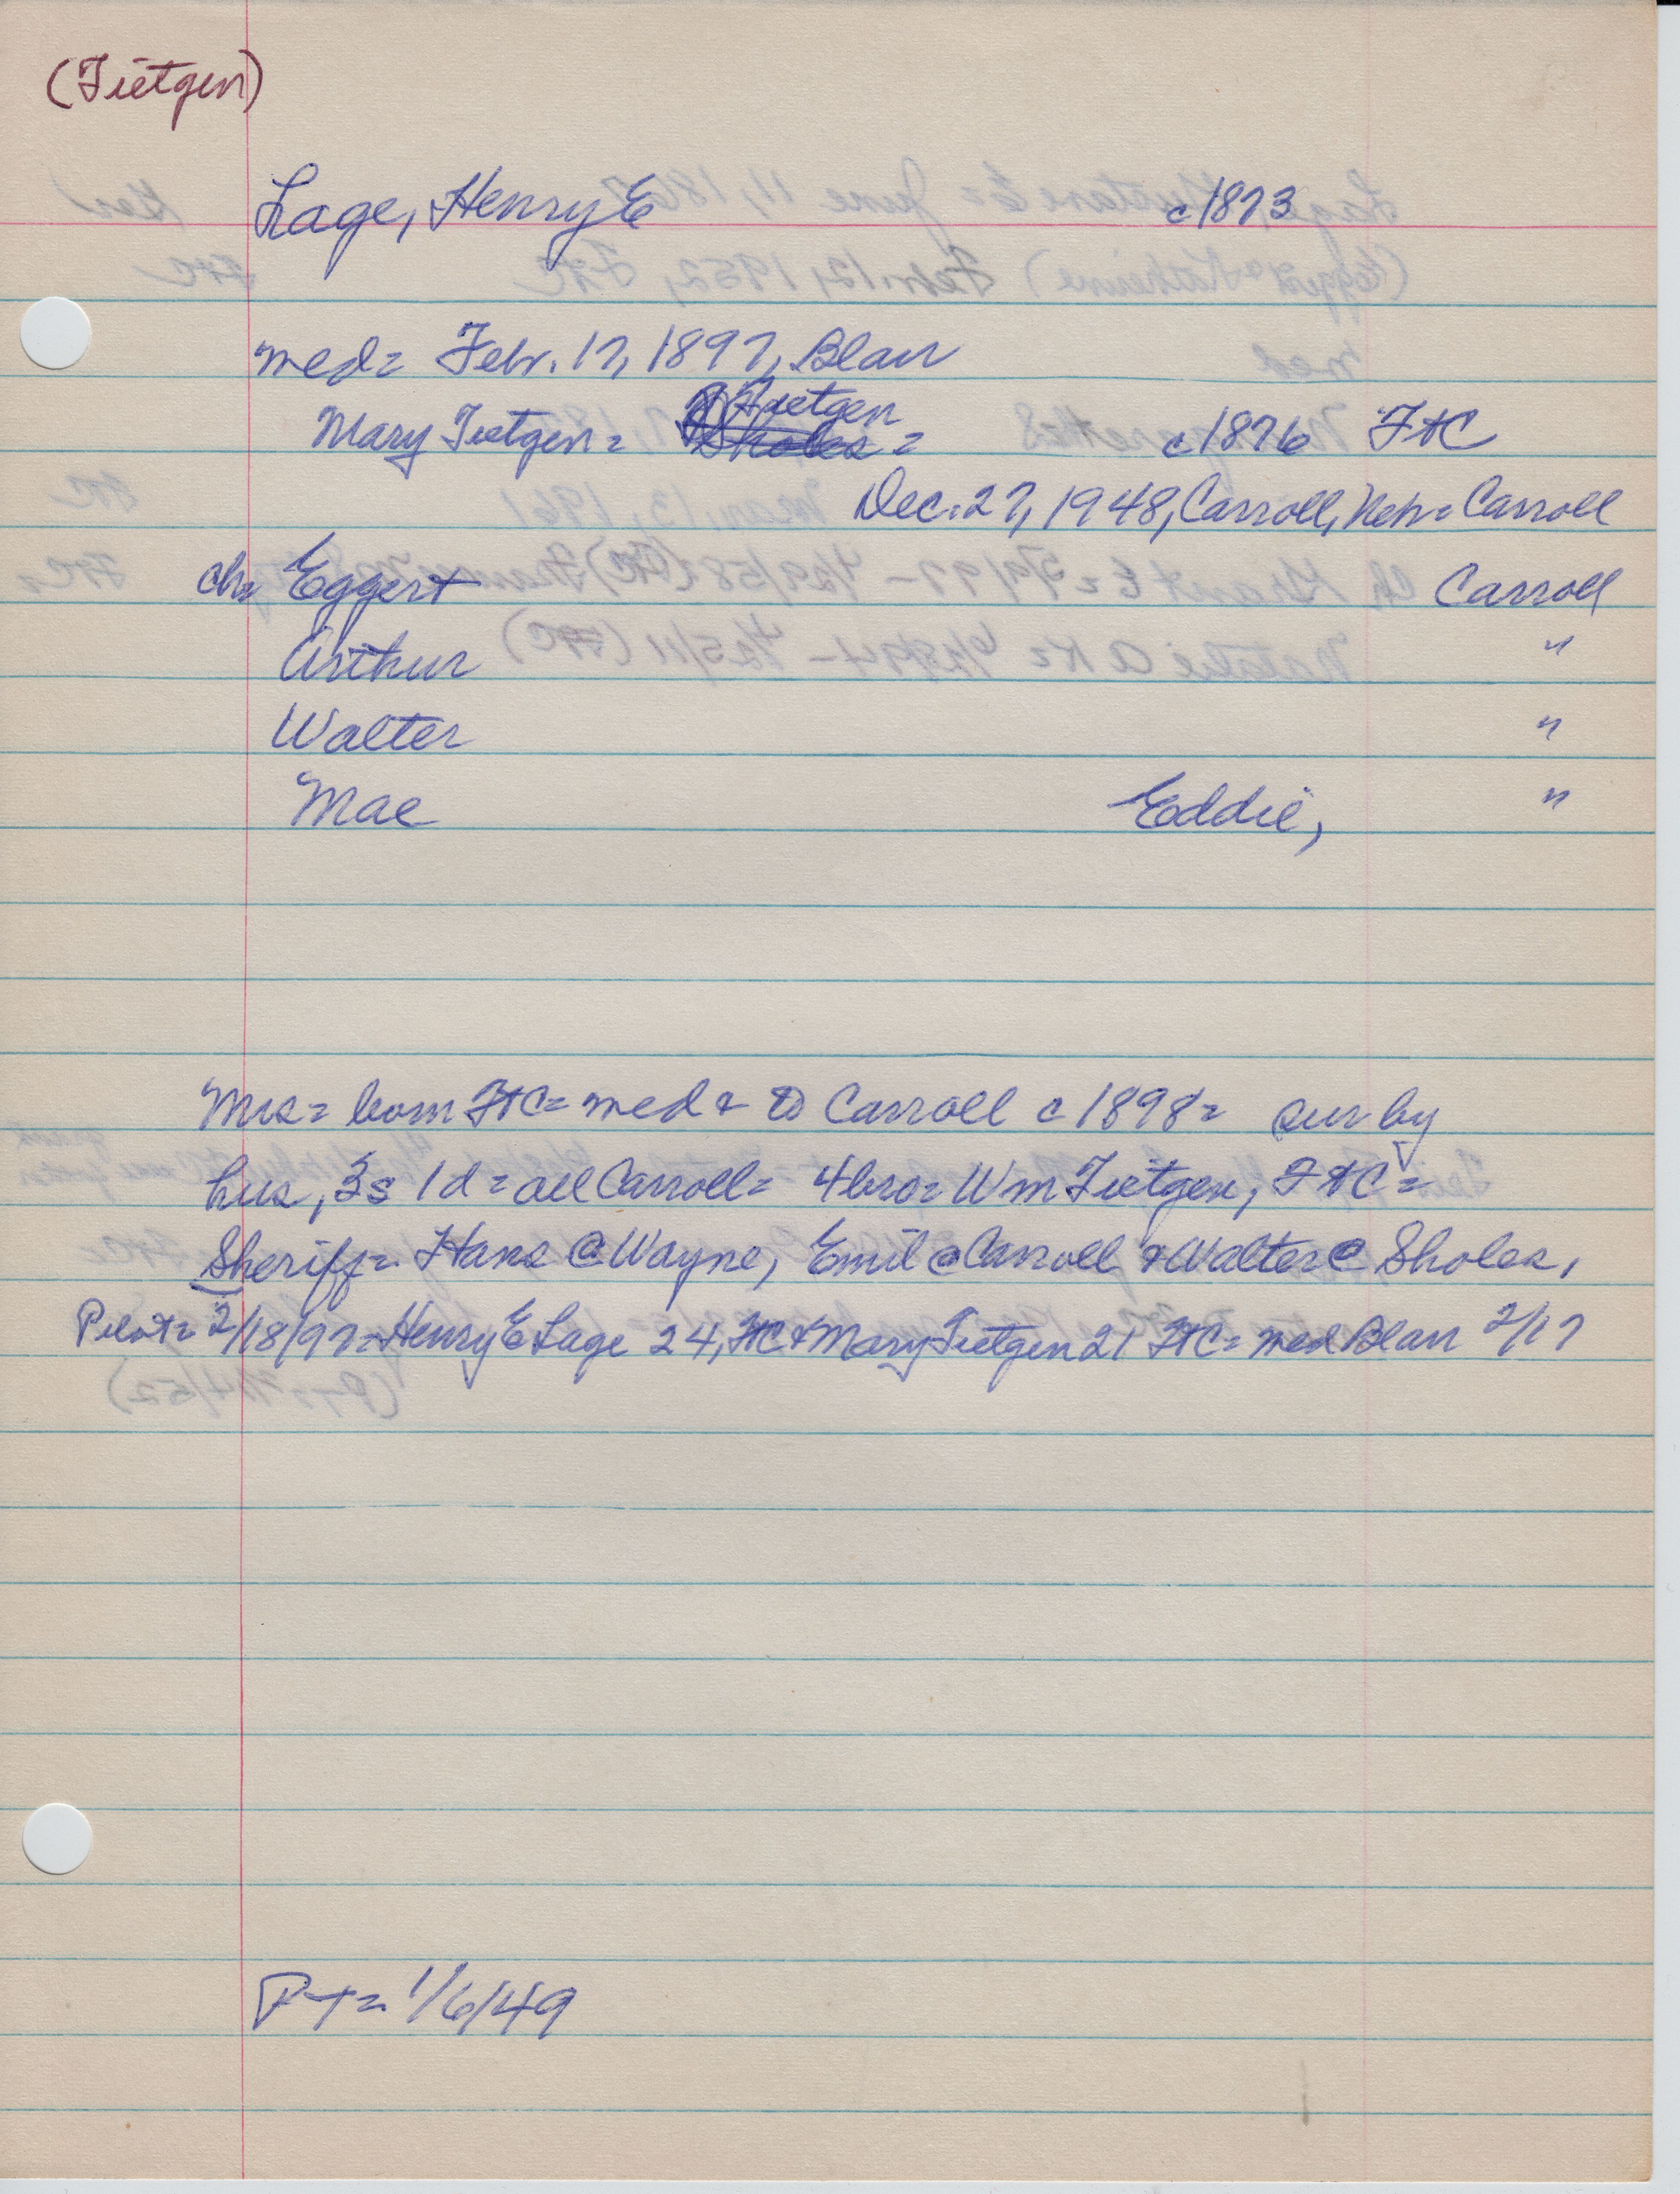 (Tietgen)
Lage, Henry E c1873
med= Febr. 17, 1897, Blair
Tietgen
Mary Tietgen= = c1876 FtC
Dec. 27, 1948, Carroll, Neb= Carroll
ch= Eggert Carroll
Arthur "
Walter "
Mae Eddie, "
Mrs= born FtC= med & to Carroll c1898= sur by
hus, 3s 1d= all Carroll= 4bro= Wm Tietgen, FtC=
Sheriff= Hans @ Wayne, Emil @ Carroll & Walter @ Sholes,
Pilot= 2/18/97= Henry E Lage 24, FtC & Mary Tietgen 21 FtC= med Blair 2/17
PT= 1/6/49